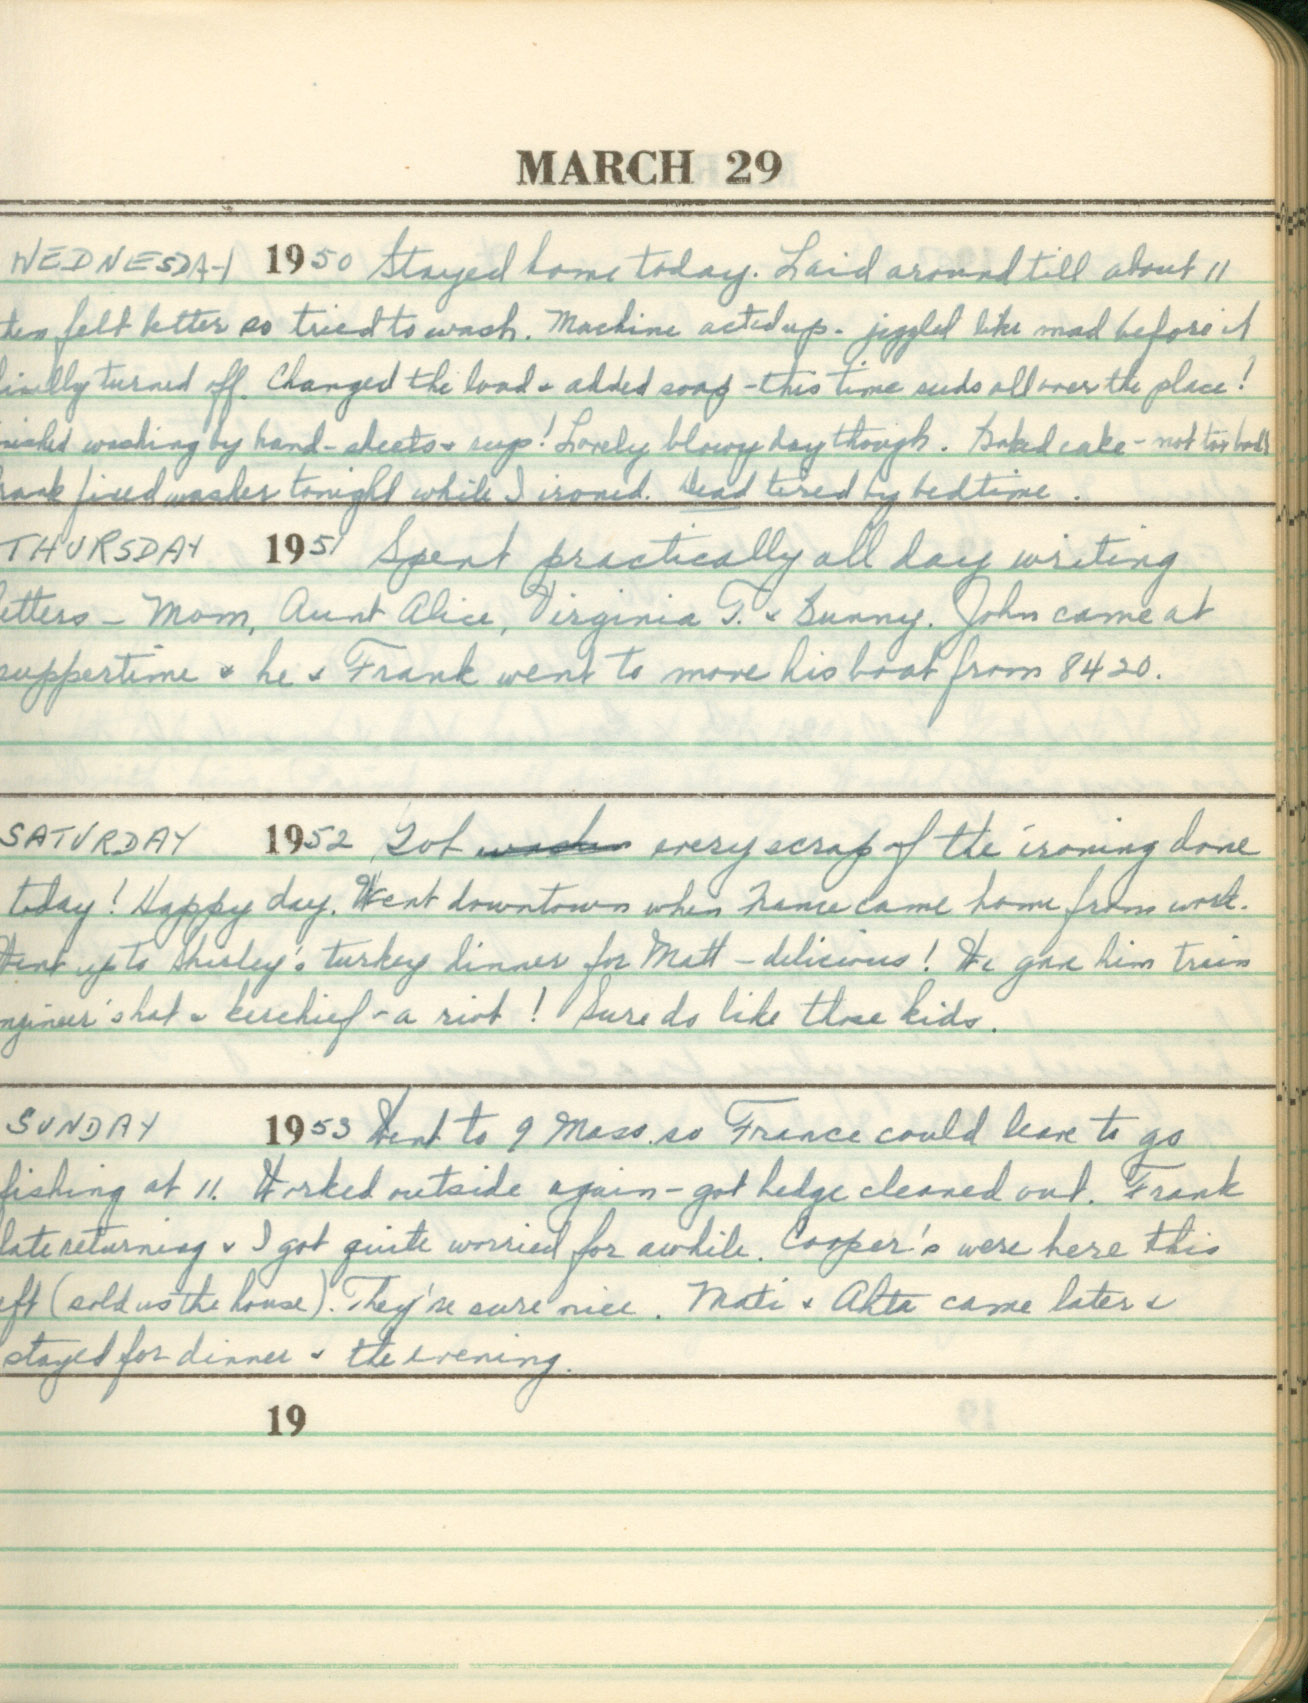 MARCH 29
WEDNESDAY 1950 Stayed home today. Laid around till about 11
then felt better so tried to wash. Machine acted up - jiggled like mad before it
finally turned off. Changed the load & added soap - this time suds all over the place!
nished washing by hand - sheets & sup! Lovely blowy day though. Baked cake - not too bad!
rank fixed washer tonight while I ironed. Dead tired by bedtime.
THURSDAY 1951 Spent practically all day writing
letters - Mom, Aunt Alice, Virginia T. & Bunny. John came at
suppertime & he & Frank went to move his boat from 8420.
SATURDAY 1952 Got every scrap of the ironing done
today! Happy day. Went downtown when France came home from work.
Went up to Shirley's turkey dinner for Matt - delicious! We gave him train
ngineer's hat & kerchief - a riot! Sure do like those kids.
SUNDAY 1953 Went to 9 Mass so France could leave to go
fishing at 11. Worked outside again - got hedge cleaned out. Frank
late returning & I got quite worried for awhile. Cooper's were here this
aft (sold us the house). They're sure nice. Mati & Ahta came later &
stayed for dinner & the evening.
19